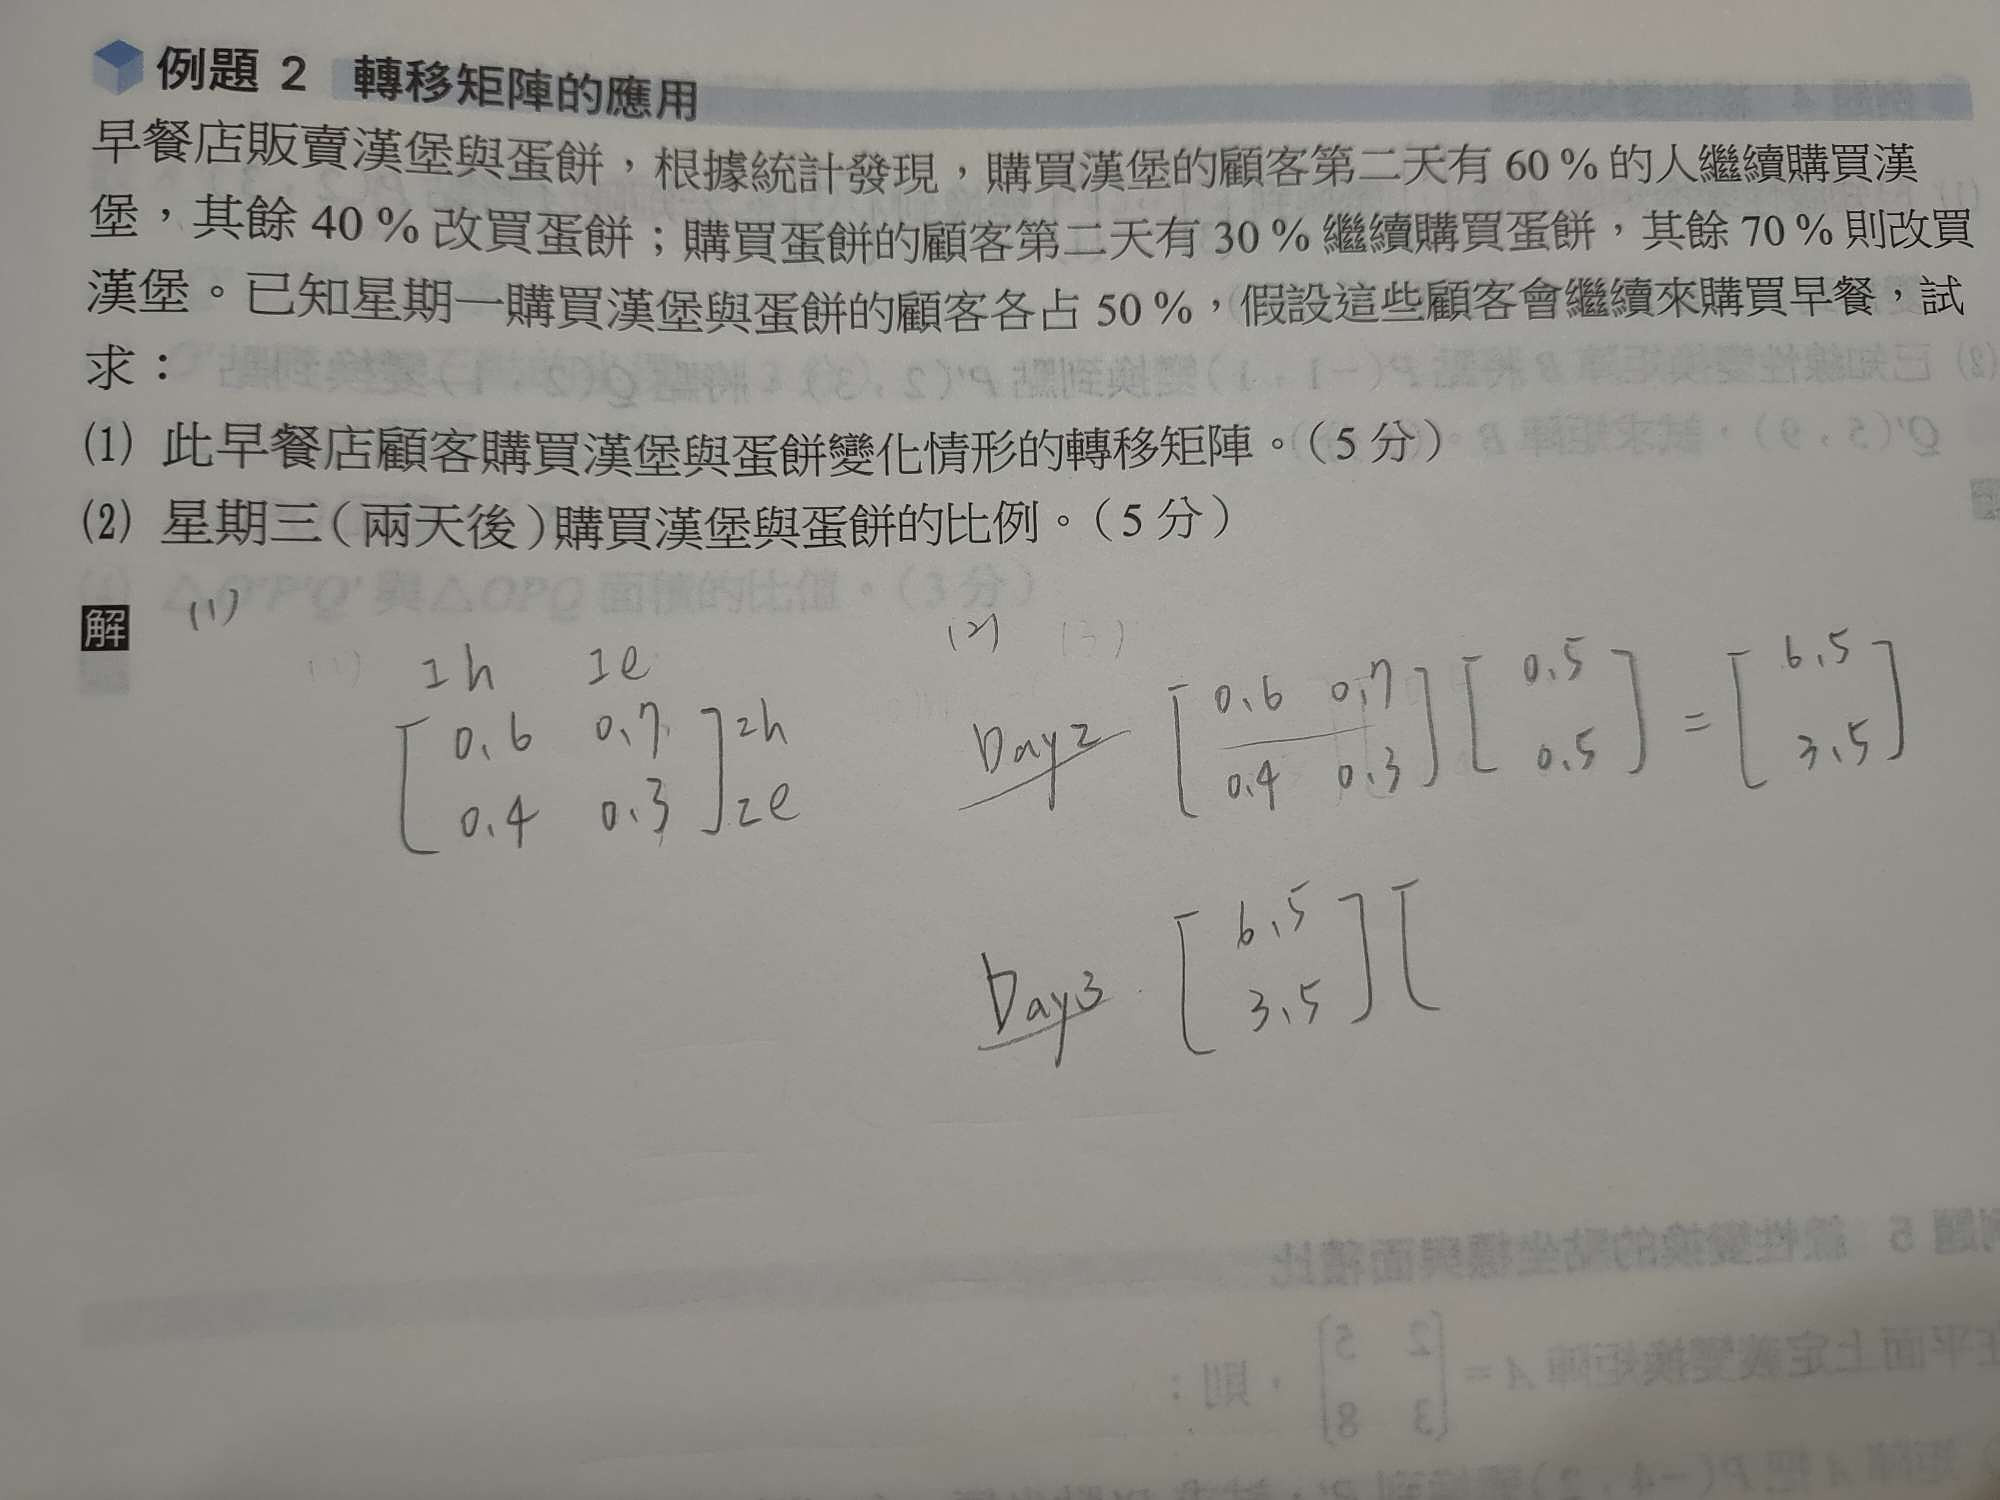 例題 2 轉移矩陣的應用
早餐店販賣漢堡與蛋餅，根據統計發現，購買漢堡的顧客第二天有 60 % 的人繼續購買漢
堡，其餘 40 % 改買蛋餅；購買蛋餅的顧客第二天有 30 % 繼續購買蛋餅，其餘 70 % 則改買
漢堡。已知星期一購買漢堡與蛋餅的顧客各占 50 %，假設這些顧客會繼續來購買早餐，試
求：
(1) 此早餐店顧客購買漢堡與蛋餅變化情形的轉移矩陣。（5 分）
(2) 星期三（兩天後）購買漢堡與蛋餅的比例。（5 分）
解 (1)
1h 1e
[ 0.6 0.7 ] 2h
[ 0.4 0.3 ] 2e
(2)
Day 2 [ 0.6 0.7 ] [ 0.5 ] = [ 6.5 ]
[ 0.4 0.3 ] [ 0.5 ] [ 3.5 ]
Day 3 [ 6.5 ] [
[ 3.5 ]